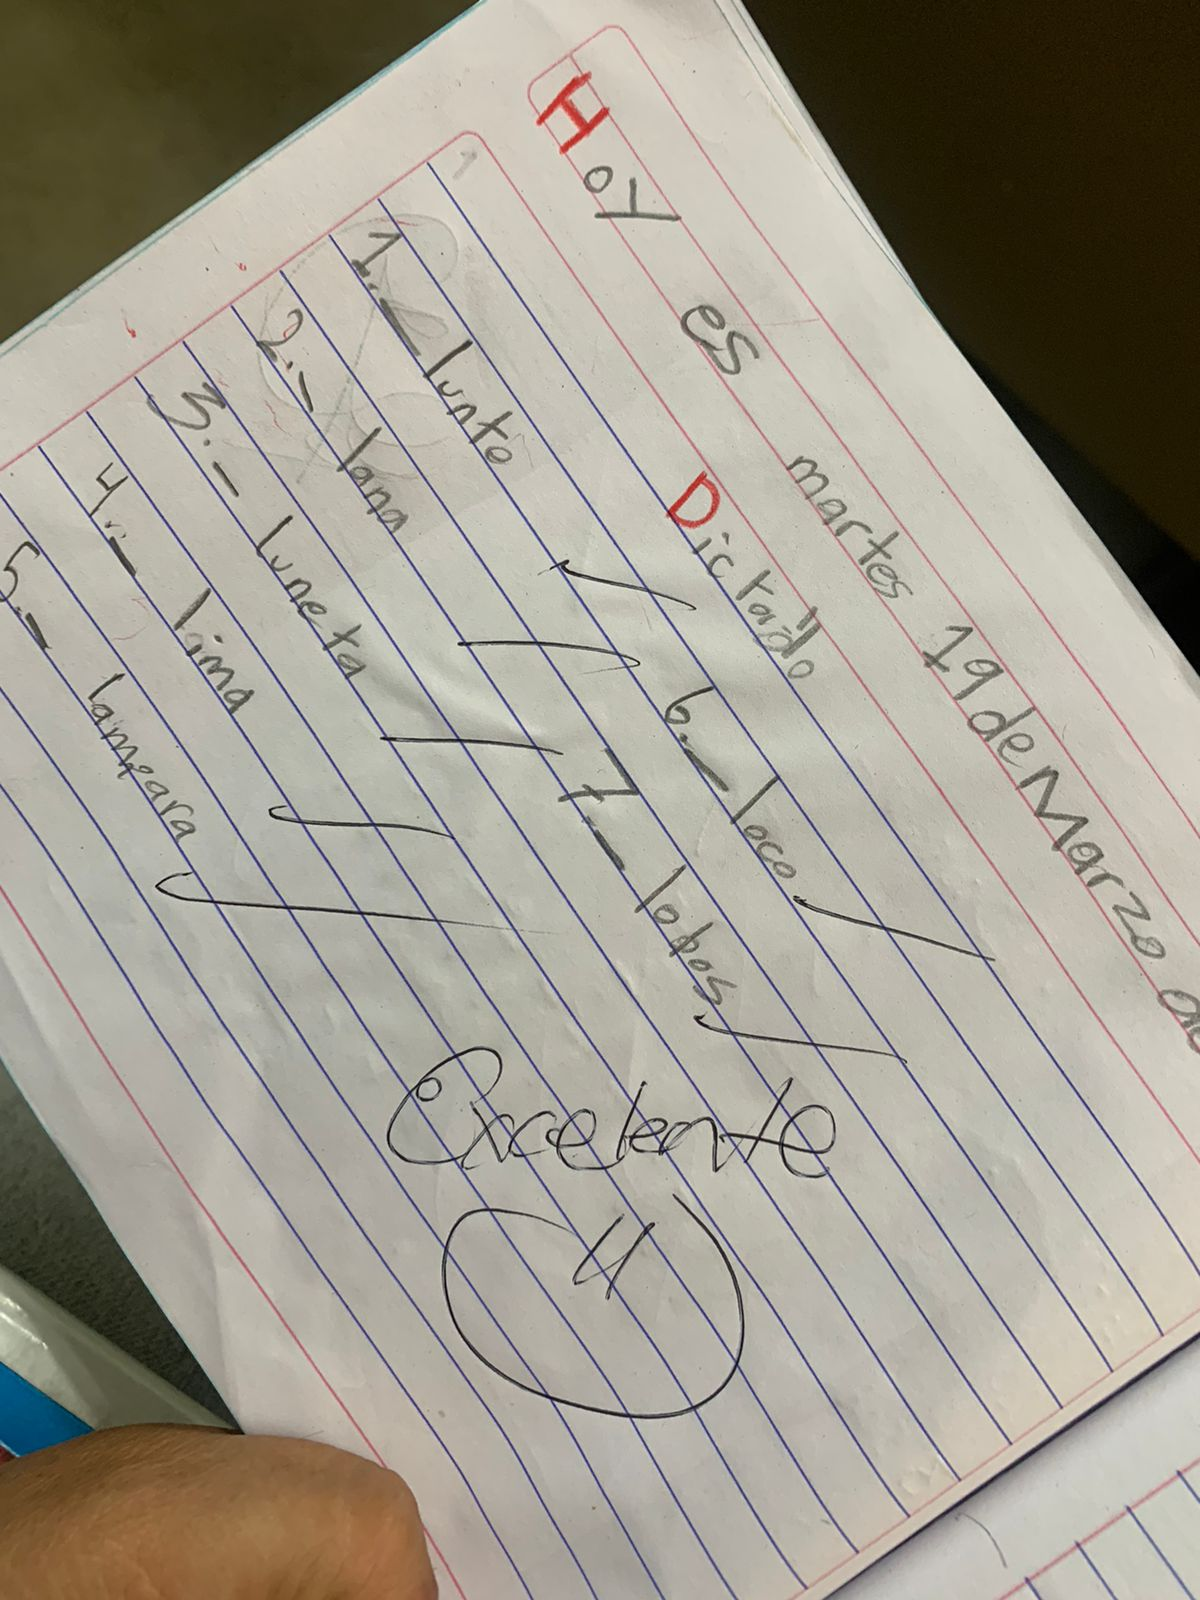 Hoy es martes 19 de Marzo de
Dictado
1.- lunto
2.- lana
3.- luneta
4.- lima
5.- lampara
6.- loco
7.- lobos
Excelente
4